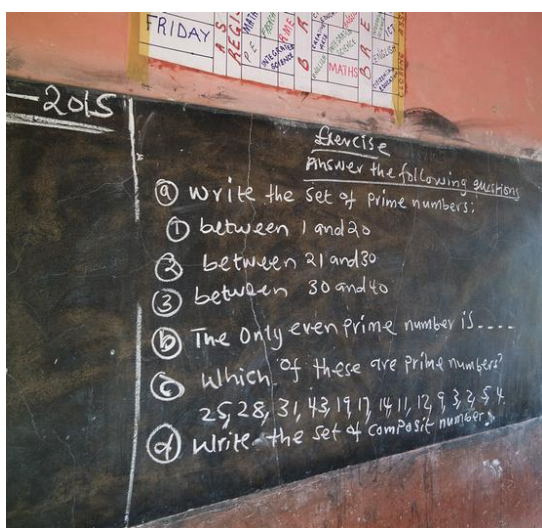 FRIDAY
MATHS
- 2015
Exercise
Answer the following questions
a Write the set of prime numbers:
1 between 1 and 20
2 between 21 and 30
3 between 30 and 40
b The only even prime number is ....
c Which of these are prime numbers?
25, 28, 31, 43, 19, 17, 14, 11, 12, 9, 3, 2, 5, 4.
d Write the set of composit number.